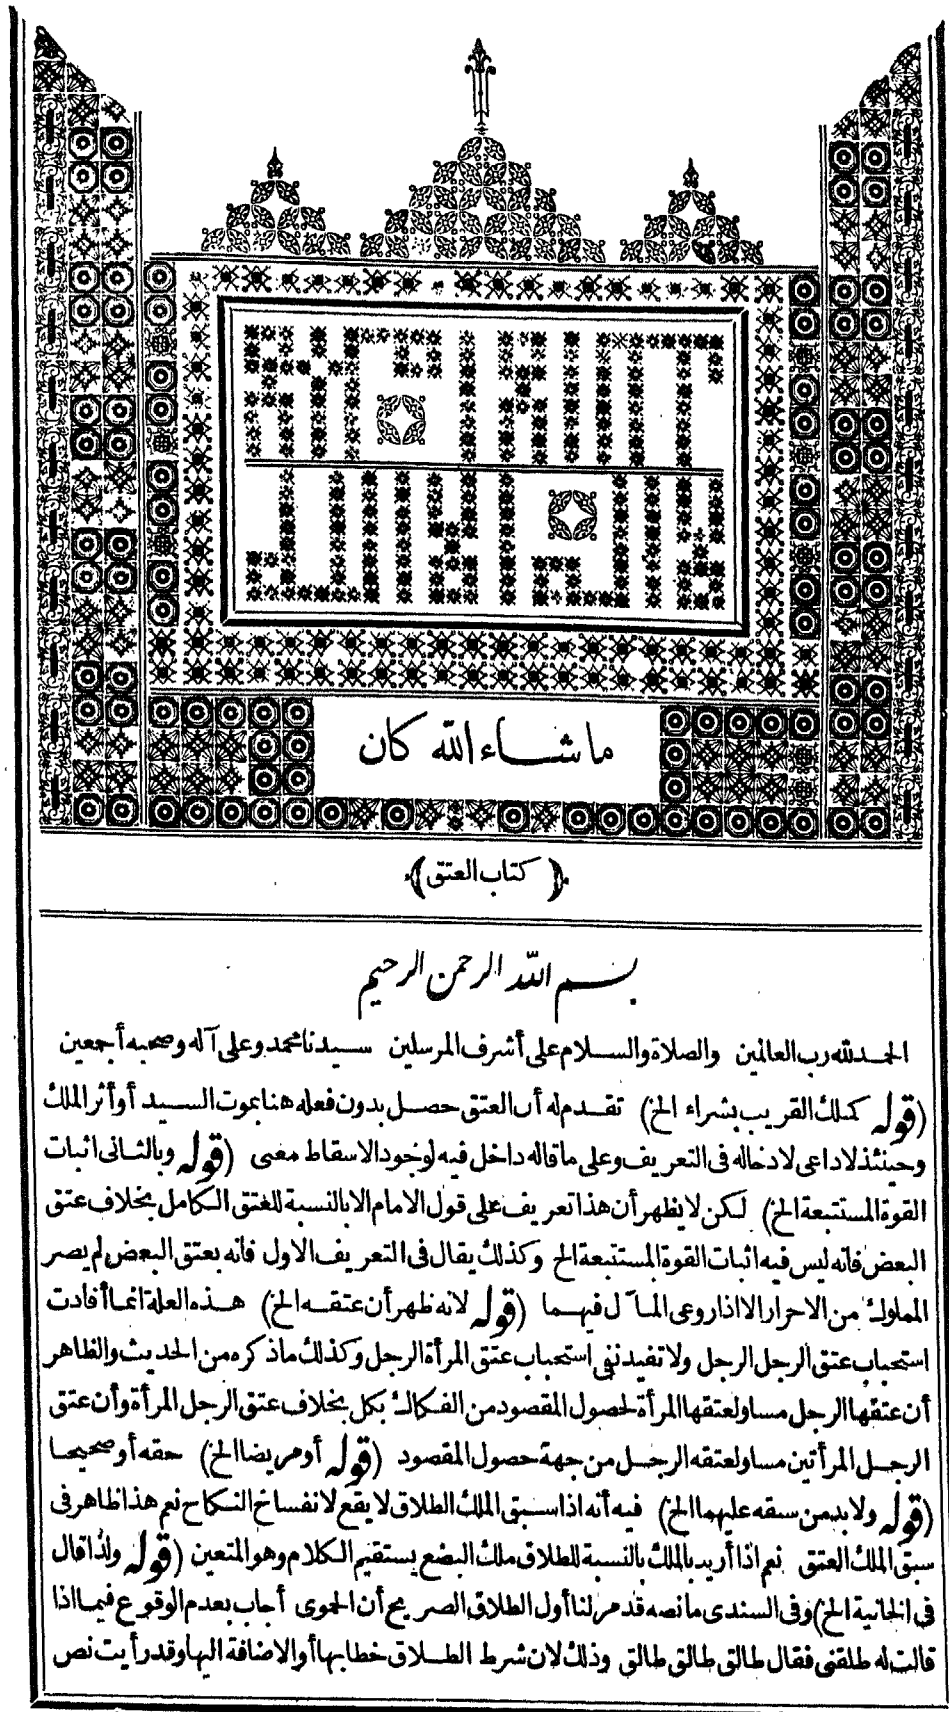 ما شاء الله كان
﴿ كتاب العتق ﴾
بسم الله الرحمن الرحيم
الحمد لله رب العالمين والصلاة والسلام على أشرف المرسلين سيدنا محمد وعلى آله وصحبه أجمعين
(قوله كملك القريب بشراء الخ) تقدم له أن العتق حصل بدون فعله هنا بموت السيد أو أثر الملك
وحينئذ لا داعى لادخاله فى التعريف وعلى ما قاله داخل فيه لوجود الاسقاط معنى (قوله وبالثانى اثبات
القوة المستتبعة الخ) لكن لا يظهر أن هذا تعريف على قول الامام الا بالنسبة للعتق الكامل بخلاف عتق
البعض فانه ليس فيه اثبات القوة المستتبعة الخ وكذلك يقال فى التعريف الاول فانه بعتق البعض لم يصر
المملوك من الاحرار الا اذا روعى المآل فيهما (قوله لانه ظهر أن عتقه الخ) هذه العلة انما أفادت
استحباب عتق الرجل الرجل ولا تفيد نفى استحباب عتق المرأة الرجل وكذلك ما ذكره من الحديث والظاهر
أن عتقها الرجل مساو لعتقها المرأة لحصول المقصود من الفكاك بكل بخلاف عتق الرجل المرأة وأن عتق
الرجل المرأتين مساو لعتقه الرجل من جهة حصول المقصود (قوله أو مريضا الخ) حقه أو صحيحا
(قوله ولا بد من سبقه عليهما الخ) فيه أنه اذا سبق الملك الطلاق لا يقع لانفساخ النكاح نعم هذا ظاهر فى
سبق الملك العتق نعم اذا أريد بالملك بالنسبة للطلاق ملك البضع يستقيم الكلام وهو المتعين (قوله ولذا قال
فى الخانية الخ) وفى السندى ما نصه قد مر لنا أول الطلاق الصريح أن الحموى أجاب بعدم الوقوع فيما اذا
قالت له طلقنى فقال طالق طالق طالق وذلك لان شرط الطلاق خطابها أو الاضافة اليها وقد رأيت نص